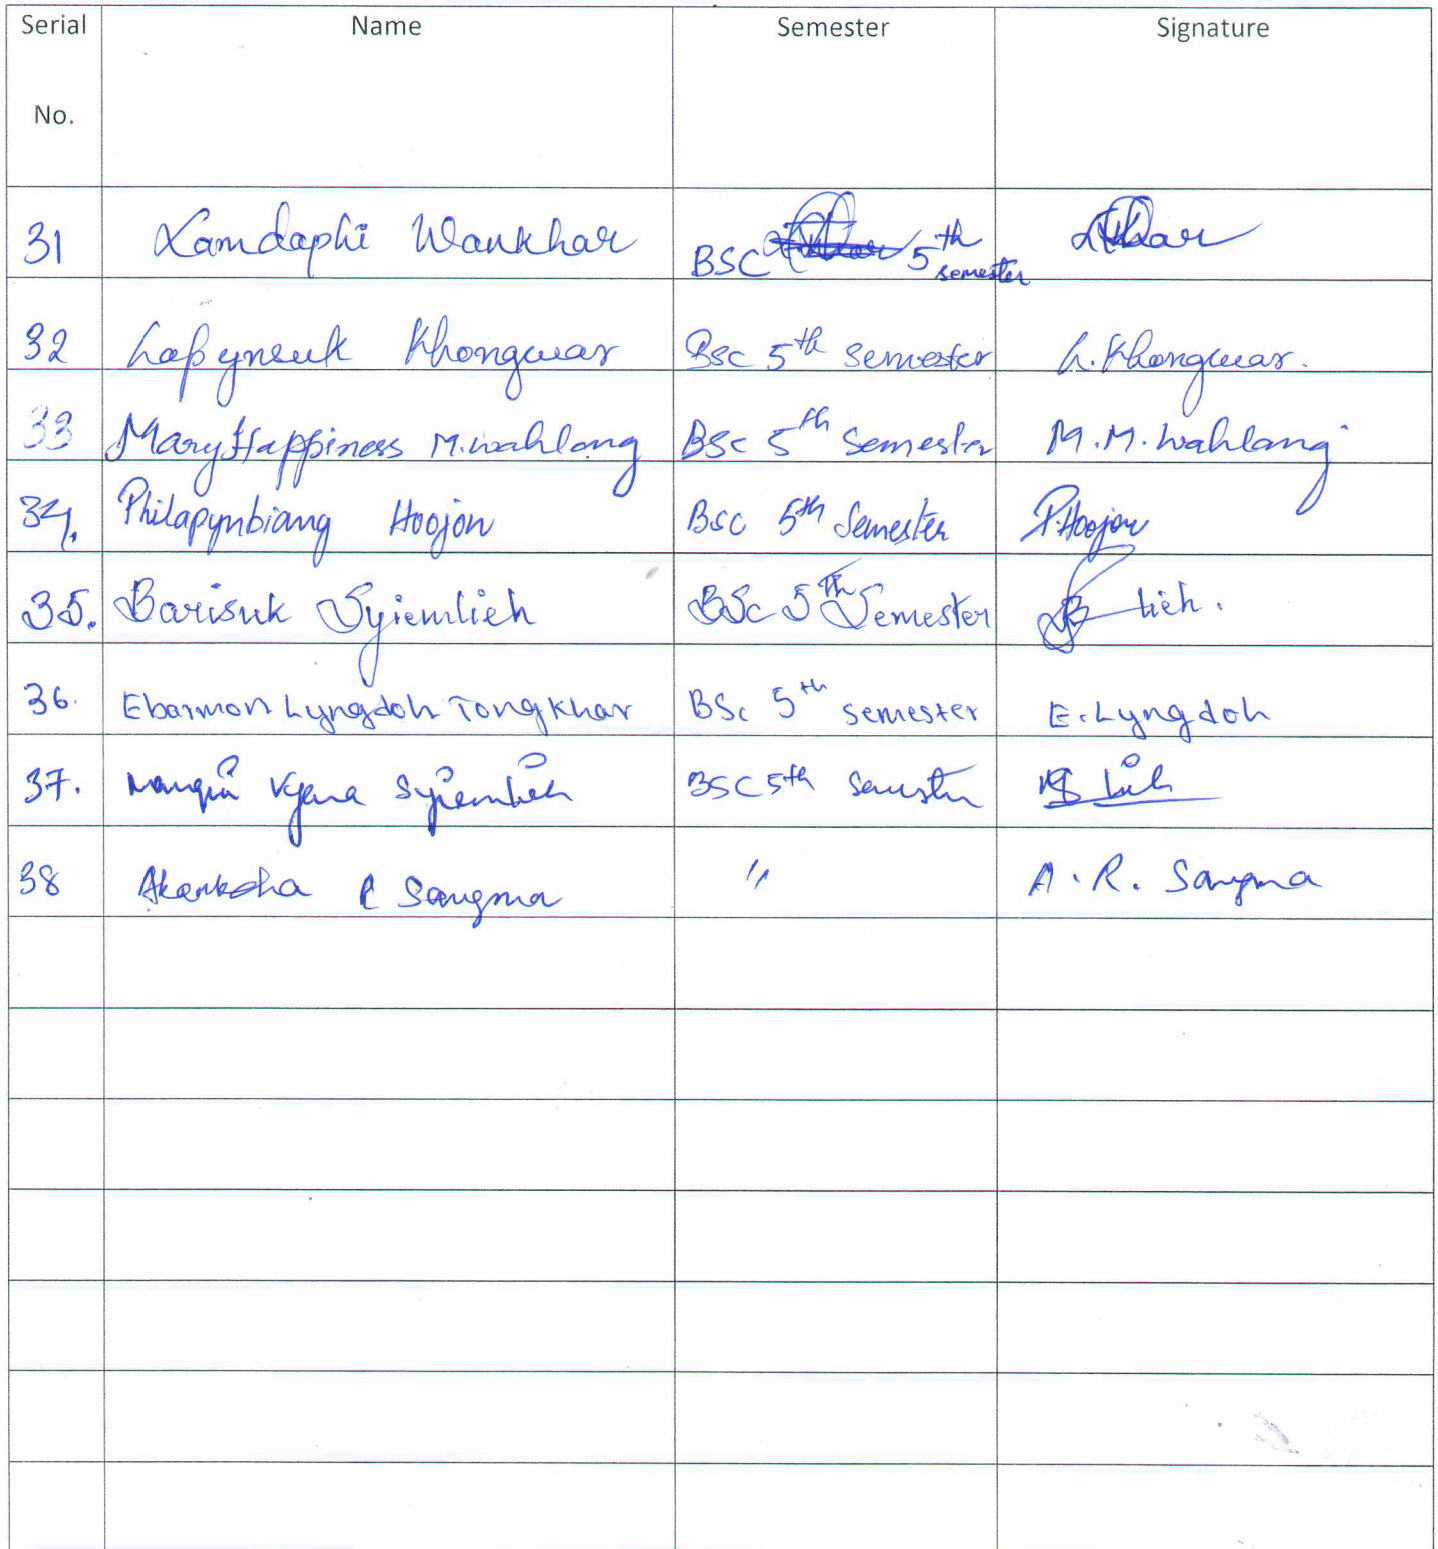 Serial No. Name Semester Signature
31 Lamdaphi Wankhar BSC 5th semester
32 Lapyneuk Khongwar BSc 5th semester L. Khongwar.
33 Mary Happiness M. Wahlang BSc 5th Semester M. M. Wahlang
34. Philapynbiang Hoojon BSC 5th Semester P. Hoojon
35. Barisuk Syiemlieh BSc 5th Semester lieh.
36. Ebarmon Lyngdoh Tongkhar BSc 5th semester E. Lyngdoh
37. Syiemlieh BSC 5th
38 Akanksha R Sangma " A. R. Sangma